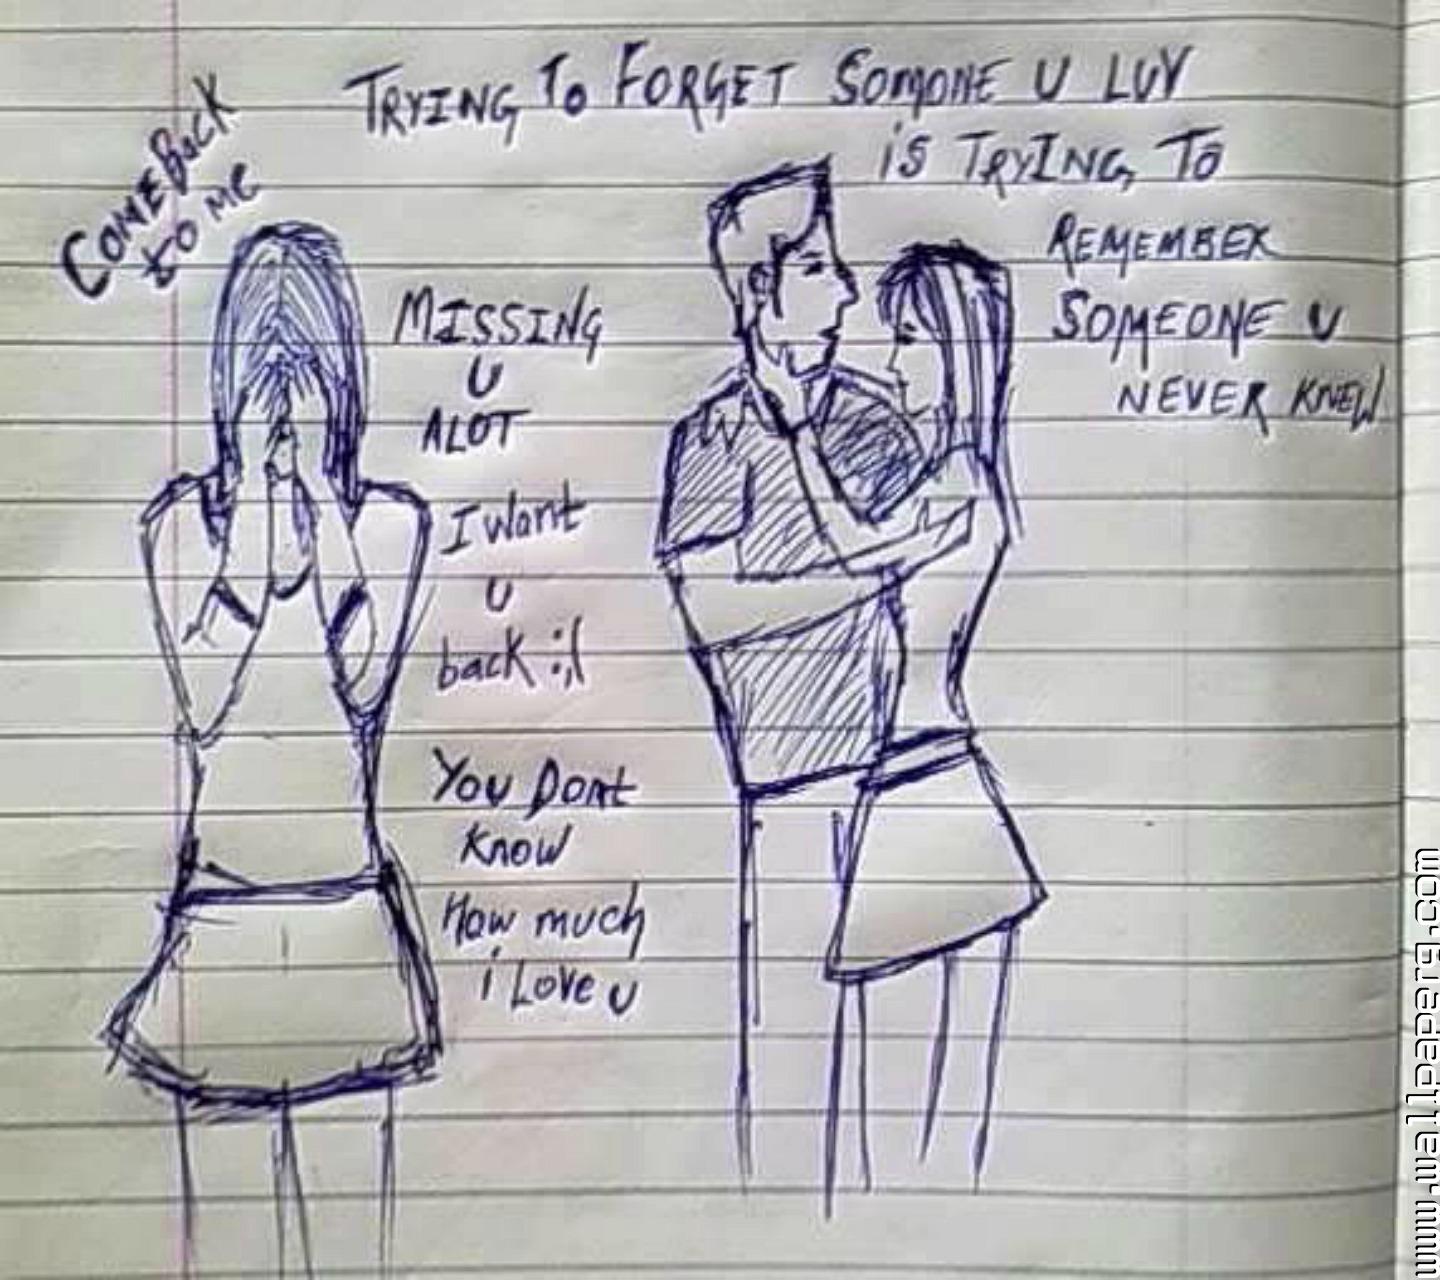 TRYING TO FORGET SOMONE U LUV
is TRYING TO
REMEMBER
SOMEONE U
NEVER KNEW
COME BACK
to ME
MISSING
U
ALOT
I Want
U
back :,(
You Dont
Know
How much
i Love u
www.wallpaperg.com